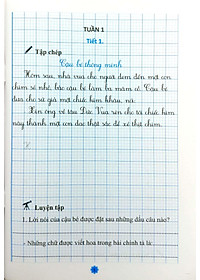 TUẦN 1
Tiết 1.
Tập chép
Cậu bé thông minh
Hôm sau, nhà vua cho người đem đến một con
chim sẻ nhỏ, bảo cậu bé làm ba mâm cỗ. Cậu bé
đưa cho sứ giả một chiếc kim khâu, nói:
- Xin ông về tâu Đức Vua rèn cho tôi chiếc kim
này thành một con dao thật sắc để xẻ thịt chim.
Luyện tập
1. Lời nói của cậu bé được đặt sau những dấu câu nào?
- Những chữ được viết hoa trong bài chính tả là: